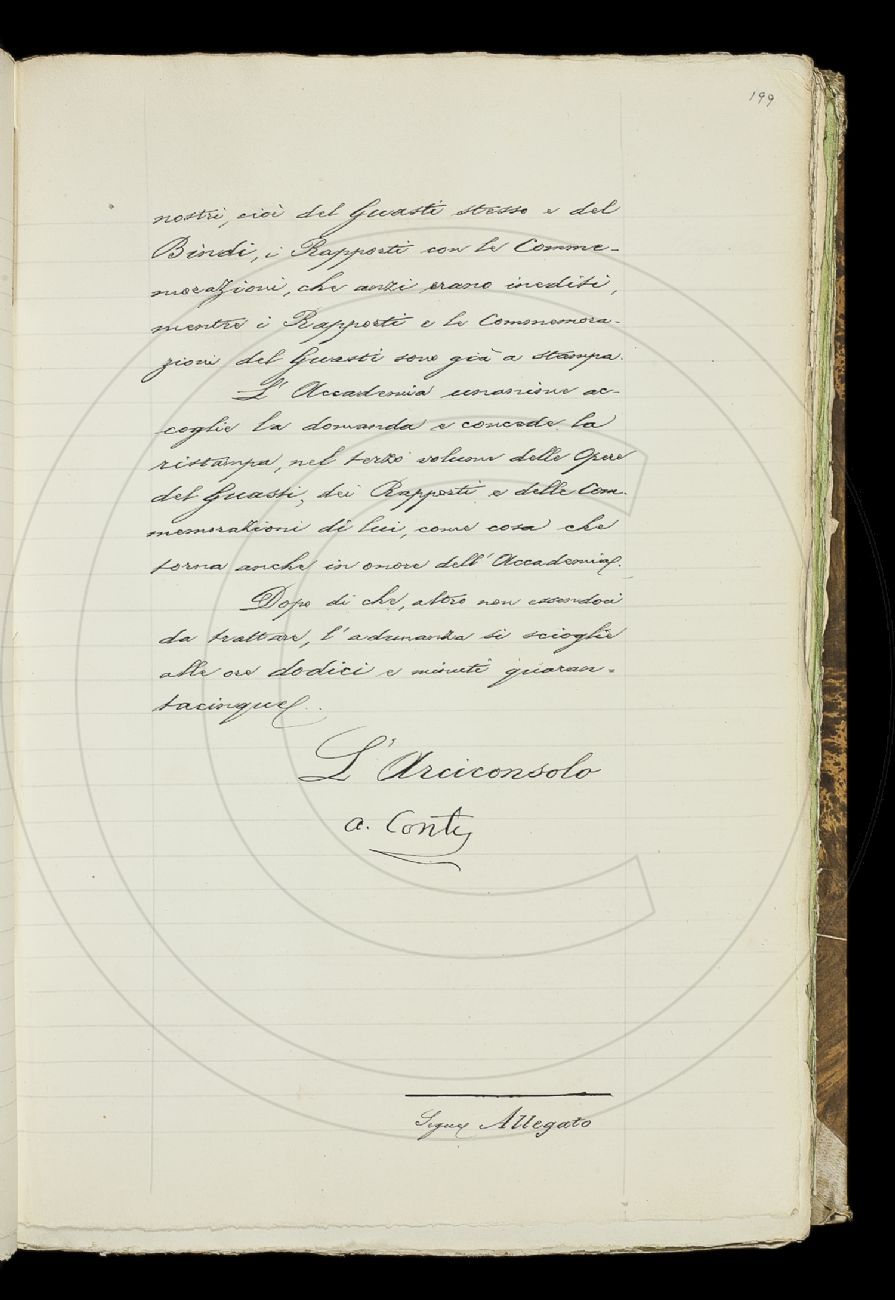 199
nostri, cioè del Guasti stesso e del
Bindi, i Rapporti con le Comme-
morazioni, che anzi erano inediti,
mentre i Rapporti e le Commemora-
zioni del Guasti sono già a stampa.
L'Accademia unanime ac-
coglie la domanda e concede la
ristampa, nel terzo volume delle Opere
del Guasti, dei Rapporti e delle Com-
memorazioni di lui, come cosa che
torna anche in onore dell'Accademia.
Dopo di che, altro non essendoci
da trattare, l'adunanza si scioglie
alle ore dodici e minuti quaran-
tacinque.
L'Arciconsolo
A. Conti
Segue Allegato